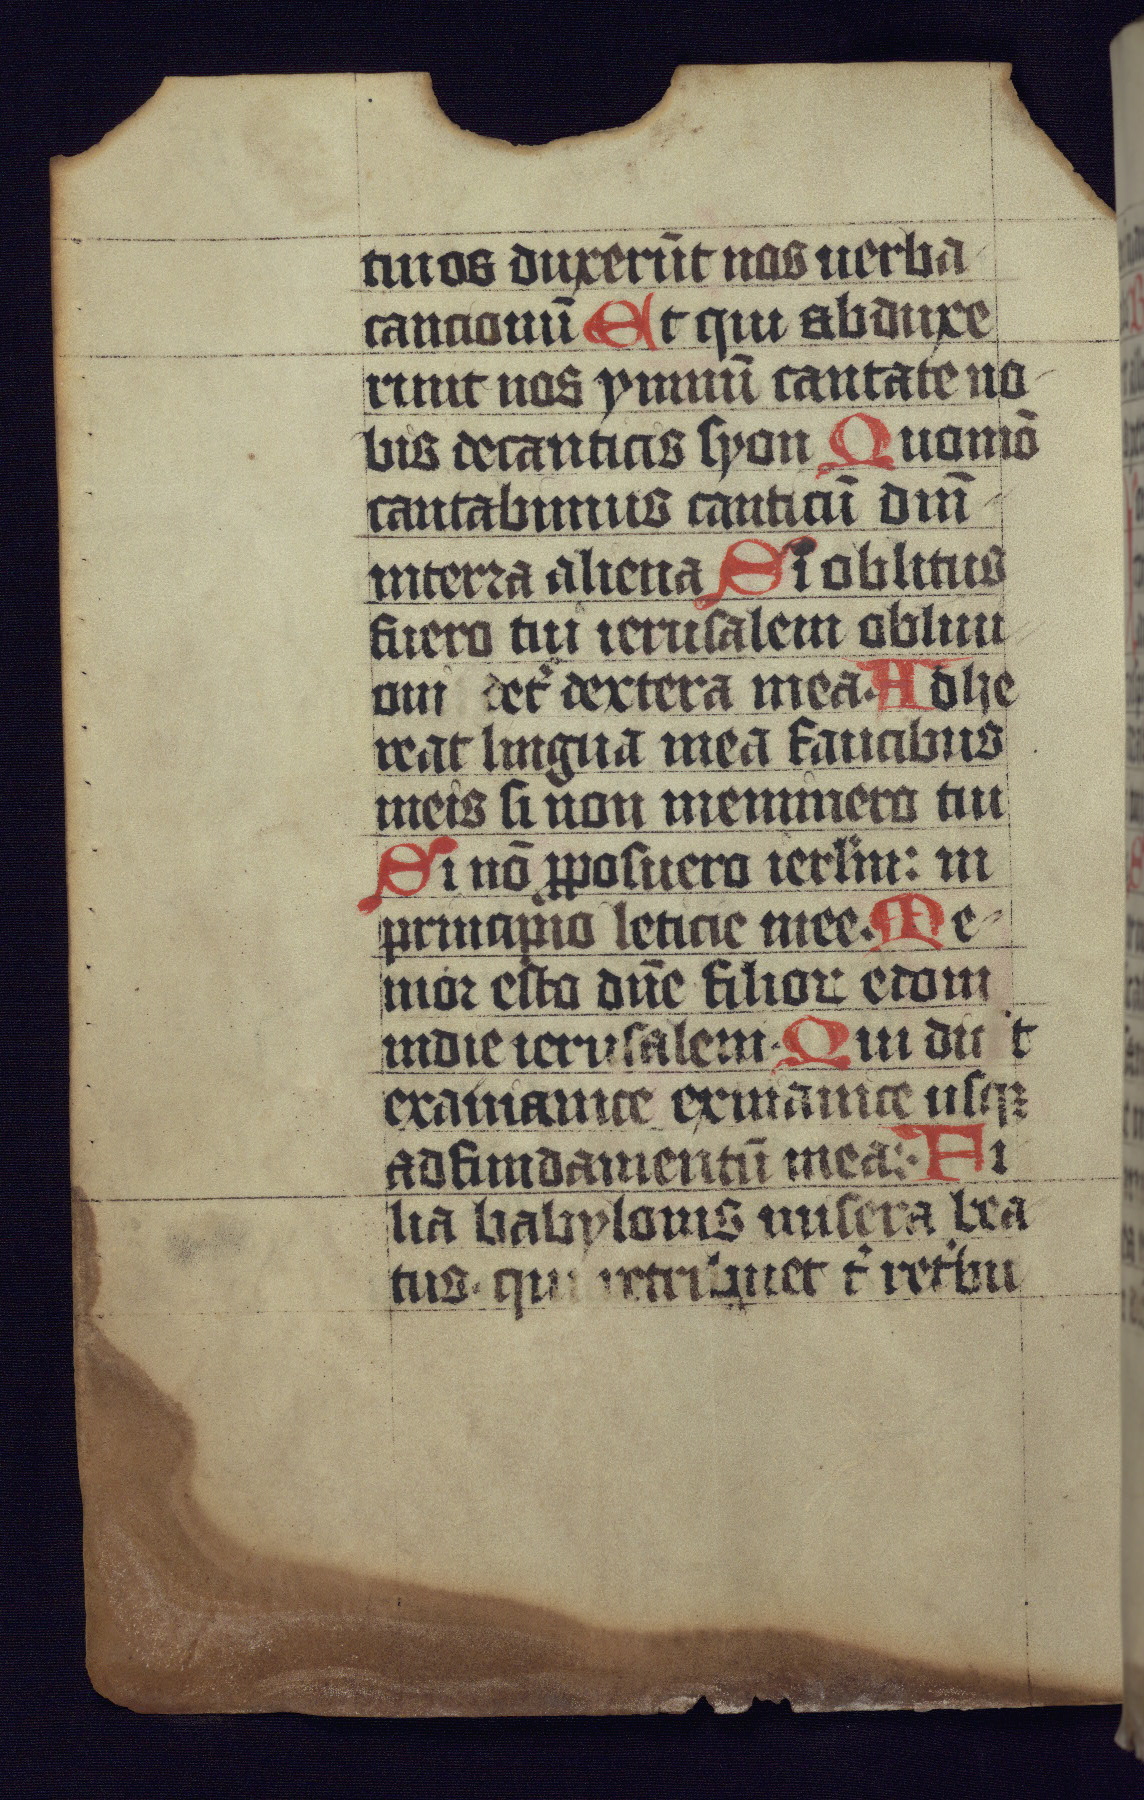 tiuos duxerūt nos uerba
cancionū Et qui abduxe
runt nos ymnū cantate no
bis decanticis syon Quomō
cantabimus canticū dnī
interra aliena Si oblitus
fuero tui ierusalem obliui
oni detr dextera mea. Adhe
reat lingua mea faucibus
meis si non meminero tui
Si nō pposuero ierlm: in
principio leticie mee. Me
mor esto dn̄e filior edom
indie ierusalem. Qui
exinanite exinanite usqꝫ
adfundamentū inea: Fi
lia babylonis misera bea
tus. qui retribuet t' ret'bu